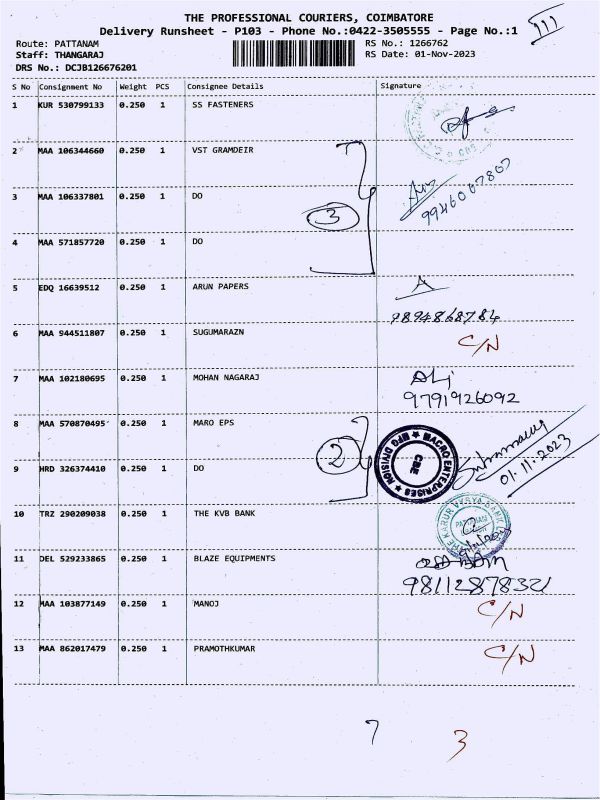 THE PROFESSIONAL COURIERS, COIMBATORE
Delivery Runsheet - P103 - Phone No.:0422-3505555 - Page No.:1
Route: PATTANAM RS No.: 1266762
Staff: THANGARAJ RS Date: 01-Nov-2023
DRS No.: DCJB126676201
S No Consignment No Weight PCS Consignee Details Signature
1 KUR 530799133 0.250 1 SS FASTENERS
2 MAA 106344660 0.250 1 VST GRAMDEIR
3 MAA 106337801 0.250 1 DO
3
9946067807
4 MAA 571857720 0.250 1 DO
5 EDQ 16639512 0.250 1 ARUN PAPERS A
9894868784
6 MAA 944511807 0.250 1 SUGUMARAZN C/N
7 MAA 102180695 0.250 1 MOHAN NAGARAJ
9791926092
8 MAA 570870495 0.250 1 MARO EPS
2
MACRO ENTERPRISES ★ MFG DIVISION ★
CBE
01.11.2023
9 HRD 326374410 0.250 1 DO
10 TRZ 290209038 0.250 1 THE KVB BANK
THE KARUR VYSYA BANK
PATTANAM
11 DEL 529233865 0.250 1 BLAZE EQUIPMENTS
98112878321
12 MAA 103877149 0.250 1 MANOJ C/N
13 MAA 862017479 0.250 1 PRAMOTHKUMAR C/N
7 3